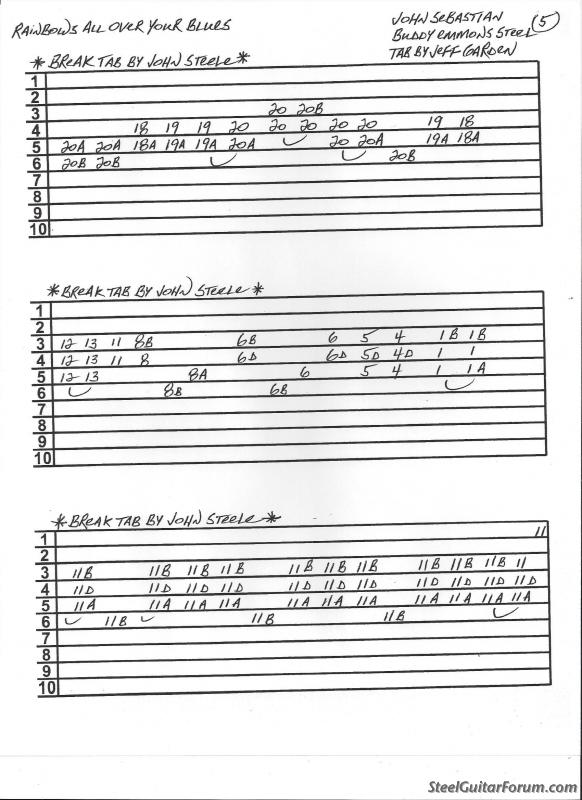 RAINBOWS ALL OVER YOUR BLUES
JOHN SEBASTIAN
BUDDY EMMONS STEEL
TAB BY JEFF GARDEN
5
* BREAK TAB BY JOHN STEELE *
1
2
3 20 20B
4 18 19 19 20 20 20 20 20 19 18
5 20A 20A 18A 19A 19A 20A 20 20A 19A 18A
6 20B 20B 20B
7
8
9
10
* BREAK TAB BY JOHN STEELE *
1
2
3 12 13 11 8B 6B 6 5 4 1B 1B
4 12 13 11 8 6D 6D 5D 4D 1 1
5 12 13 8A 6 5 4 1 1A
6 8B 6B
7
8
9
10
* BREAK TAB BY JOHN STEELE *
1 11
2
3 11B 11B 11B 11B 11B 11B 11B 11B 11B 11B 11
4 11D 11D 11D 11D 11D 11D 11D 11D 11D 11D 11D
5 11A 11A 11A 11A 11A 11A 11A 11A 11A 11A 11A
6 11B 11B 11B
7
8
9
10
SteelGuitarForum.com